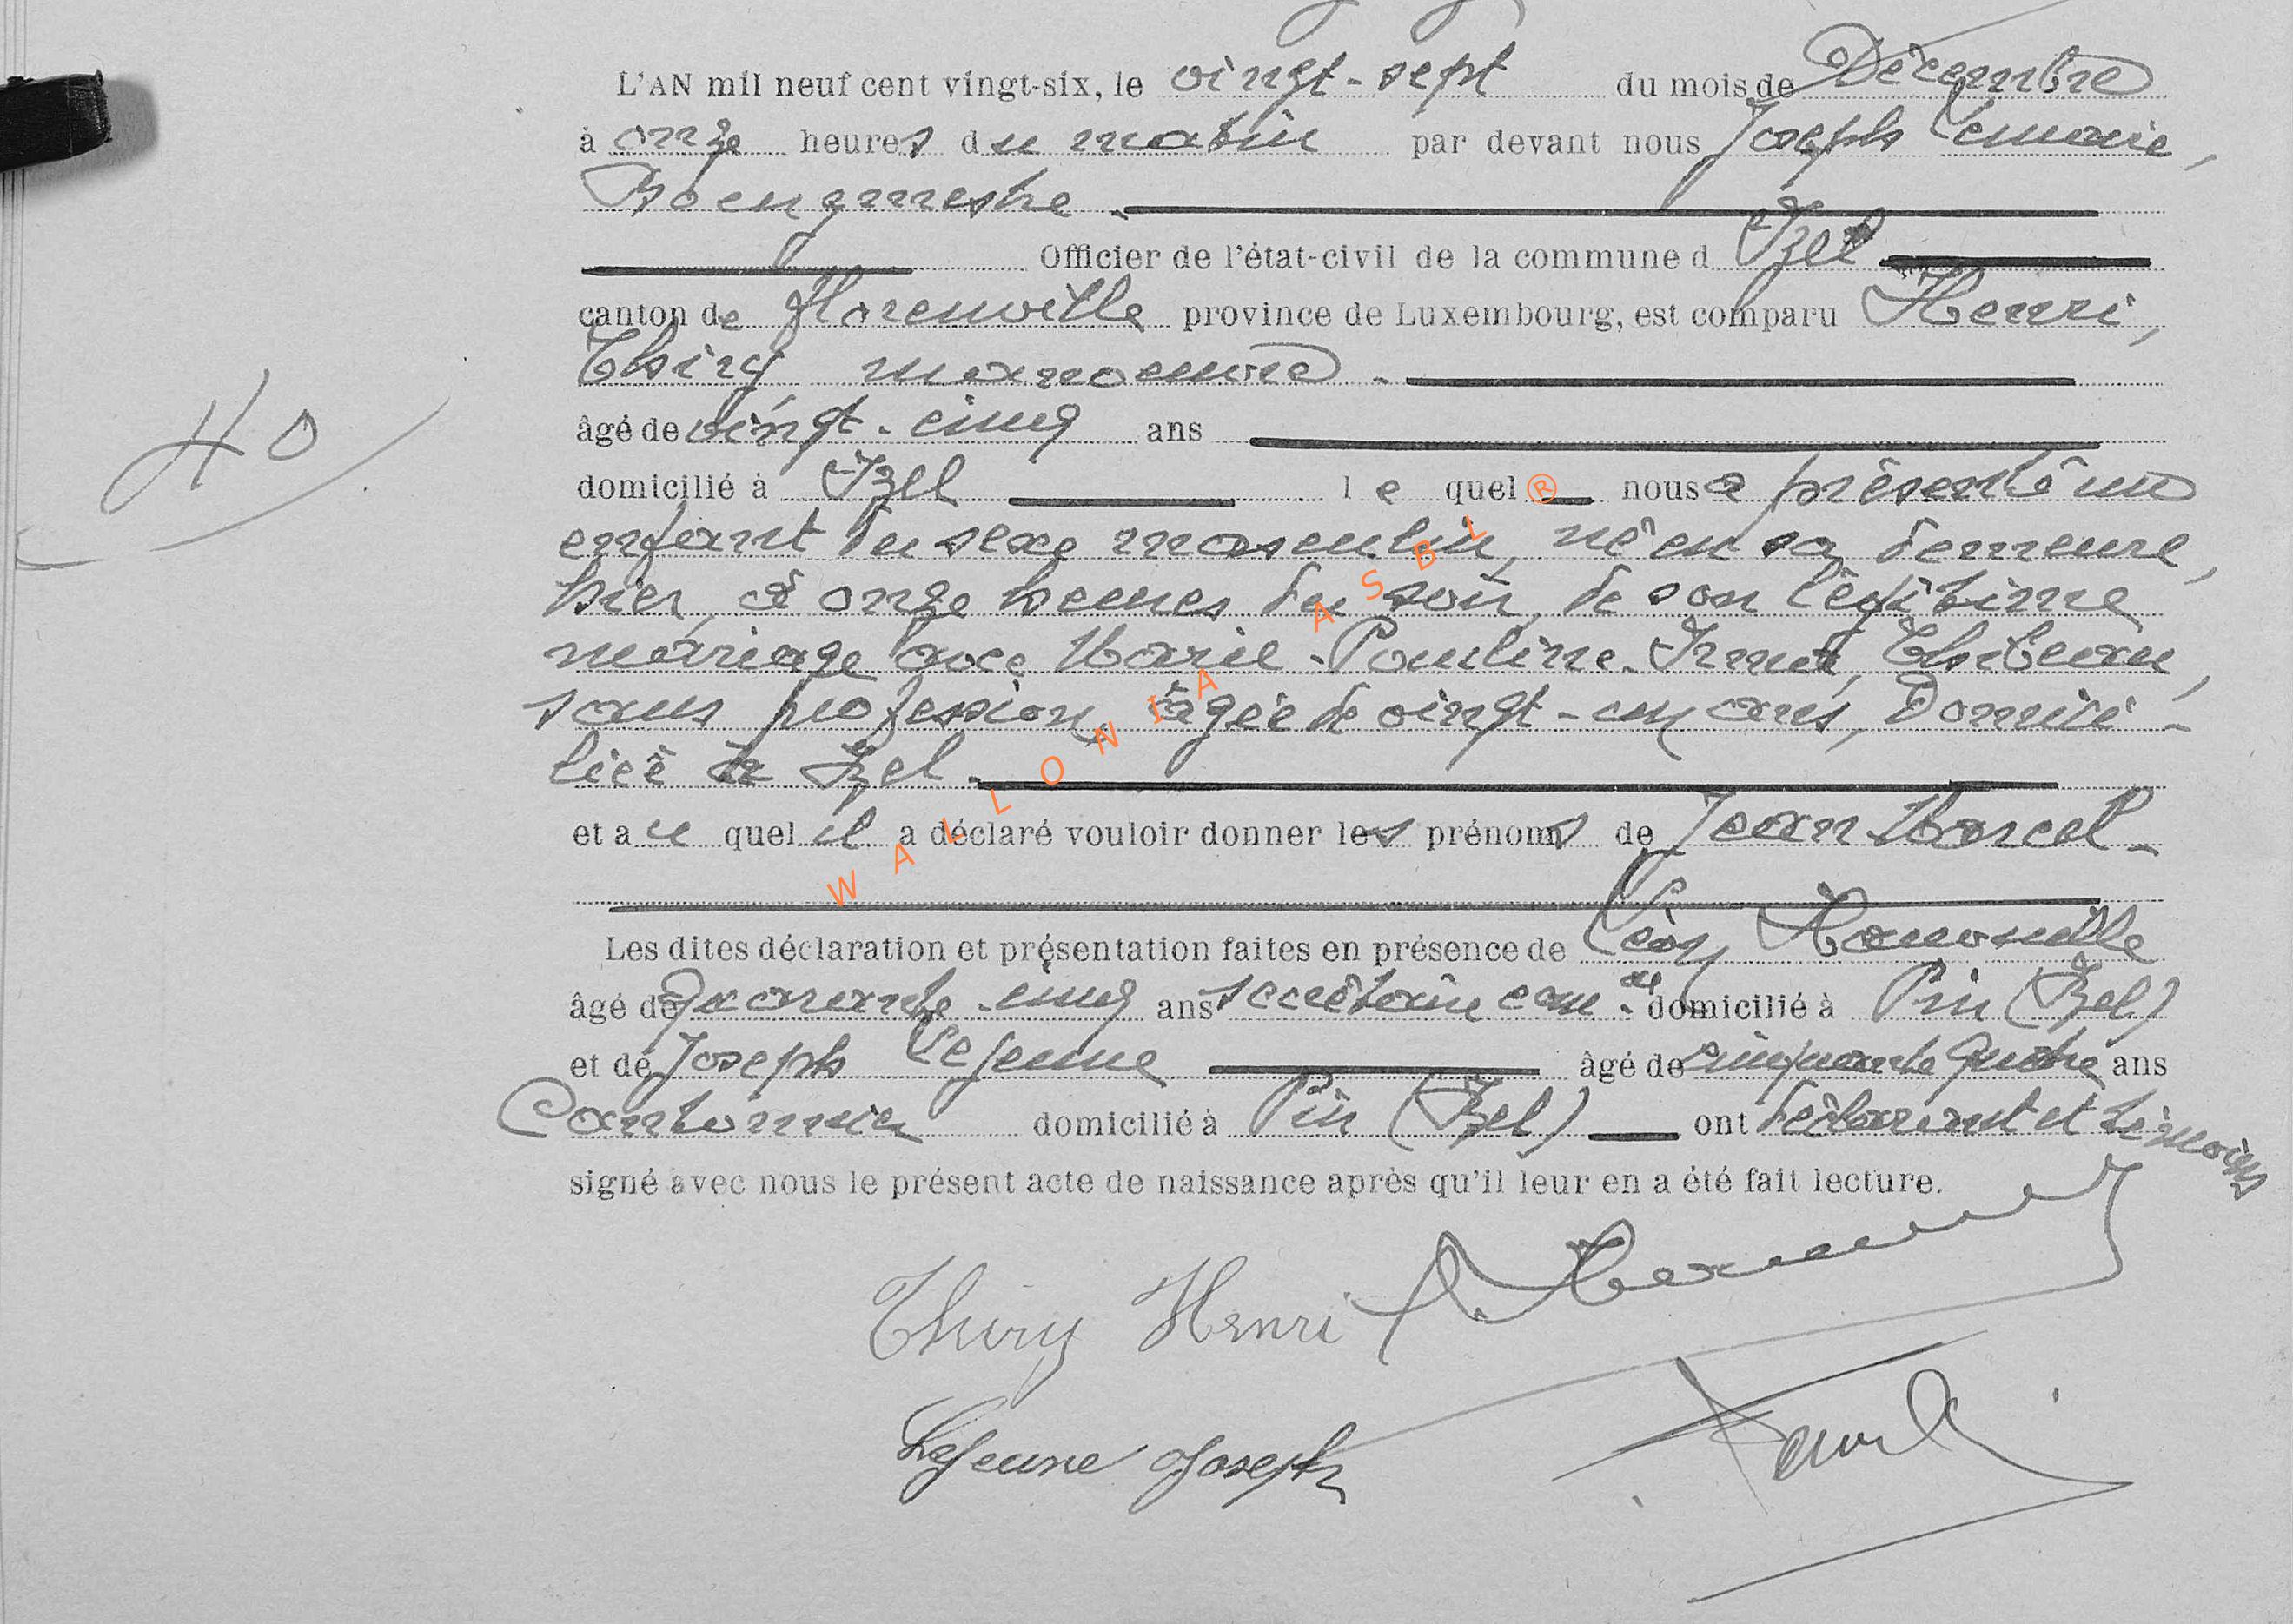 L'AN mil neuf cent vingt-six, le vingt-sept du mois de Décembre
à onze heures du matin par devant nous Joseph Lemaire,
Bourgmestre
Officier de l'état-civil de la commune d Izel
canton de Florenville province de Luxembourg, est comparu Henri,
Thiry manoeuvre
âgé de vingt-cinq ans
domicilié à Izel le quel nous a présenté un
40
enfant du sexe masculin, né en sa demeure,
hier, à onze heures du soir, de son légitime
mariage avec Marie-Pauline-Irma, Thibeau,
sans profession, âgée de vingt-un ans, domici-
liée à Izel.
et au quel il a déclaré vouloir donner les prénoms de Jean Marcel-
Les dites déclaration et présentation faites en présence de Léon
âgé de quarante-cinq ans secrétaire com.al domicilié à Pin (Izel)
et de Joseph Lejeune âgé de cinquante quatre ans
Cantonnier domicilié à Pin (Izel) ont déclarant et témoins
signé avec nous le présent acte de naissance après qu'il leur en a été fait lecture.
Thiry Henri
Lejeune Joseph
WALLONIA ASBL ®